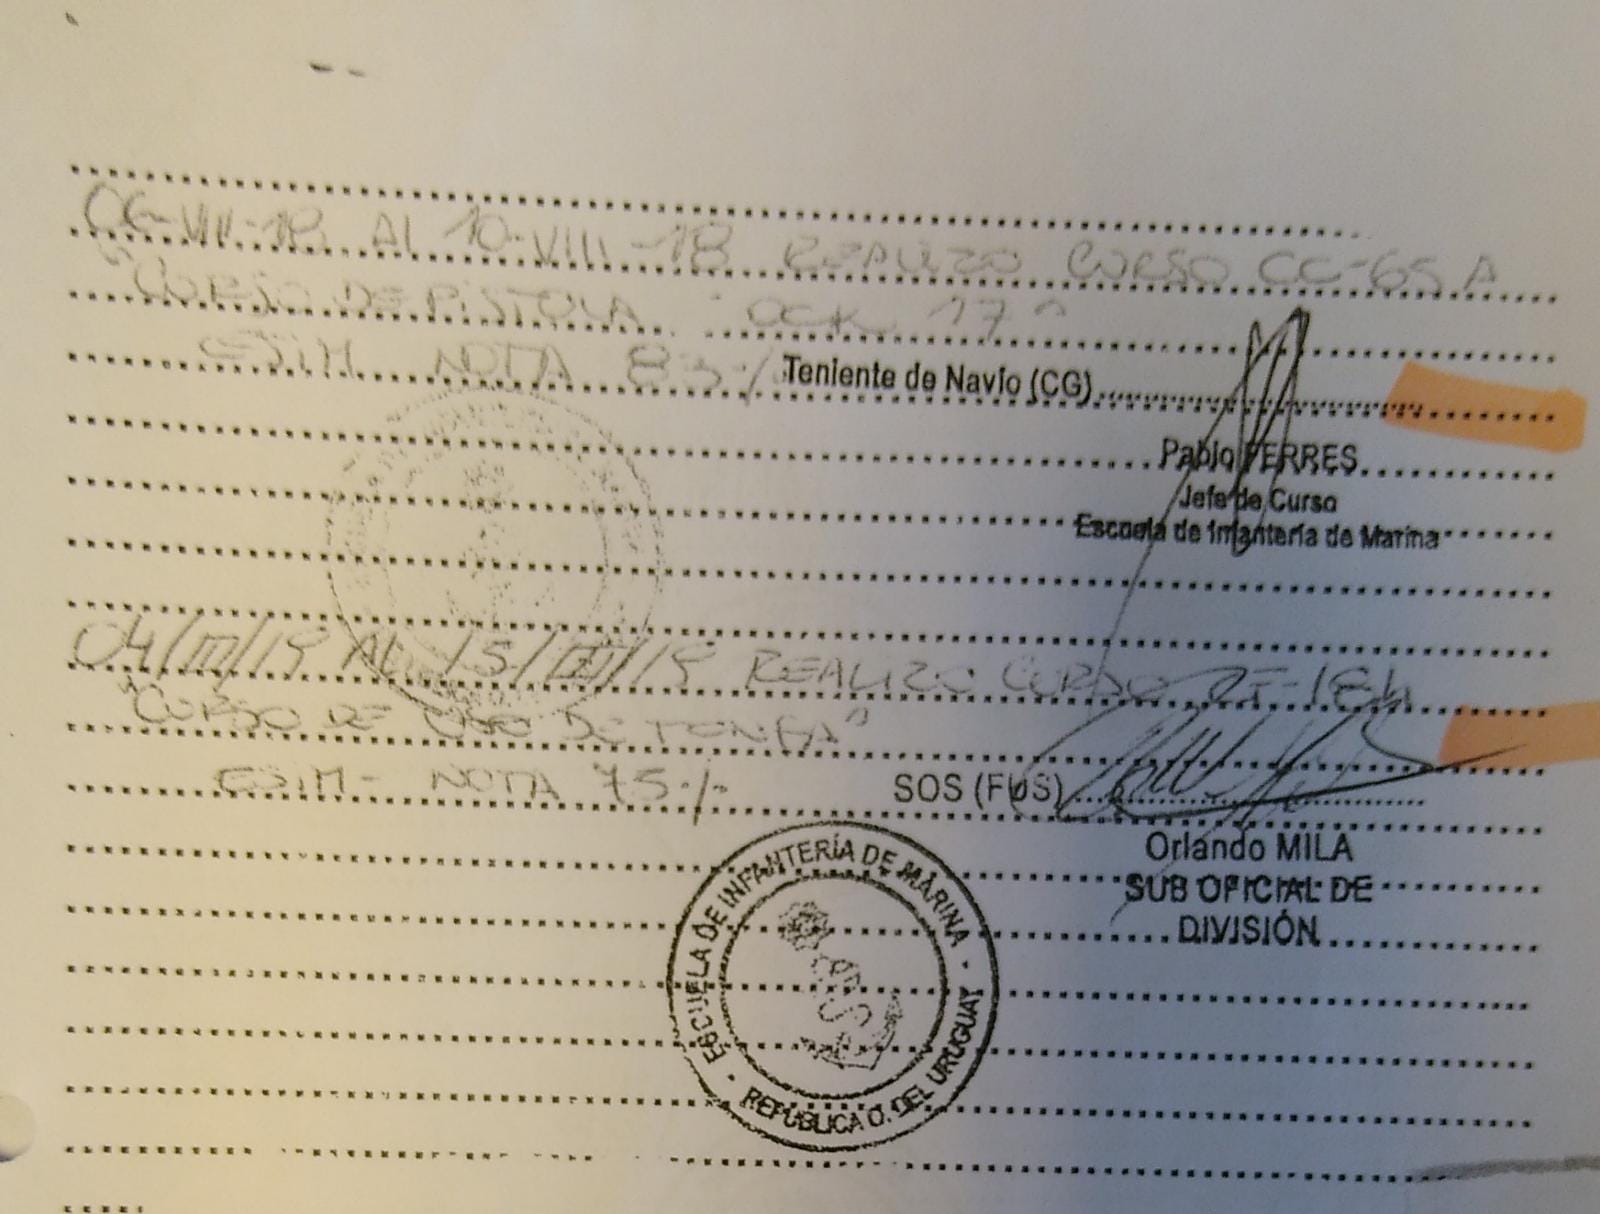 06-VIII-18 Al 10-VIII-18 REALIZO CURSO CC-65 A
"CURSO DE PISTOLA OCK 17"
ESIM NOTA 83./.
Teniente de Navío (CG)
Pablo FERRES
Jefe de Curso
Escuela de Infantería de Marina
04/III/19 AL 15/III/19 REALIZO CURSO
"CURSO DE USO DE TONFA"
ESIM - NOTA 75./.
SOS (FUS)
Orlando MILA
SUB OFICIAL DE
DIVISIÓN
ESCUELA DE INFANTERÍA DE MARINA - REPÚBLICA O. DEL URUGUAY -